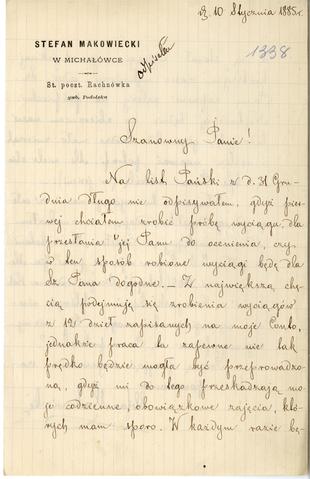 d. 10 Stycznia 1885 r.
STEFAN MAKOWIECKI
W MICHAŁÓWCE
St. poczt. Rachnówka
gub. Podolska
odpisałem
1338
Szanowny Panie!
Na list Pański z d. 31 Gru-
dnia długo nie odpisywałem, gdyż pier-
wej chciałem zrobić próbę wyciągu, dla
przesłania jej Panu do ocenienia, czy
w ten sposób robione wyciągi będą dla
Sz. Pana dogodne. — Z największą chę-
cią podejmuję się zrobienia wyciągów
z 12 dzieł zapisanych na moje Conto,
jednakże praca ta zapewne nie tak
prędko będzie mogła być przeprowadzo-
ną, gdyż mi do tego przeszkadzają mo-
je codzienne, obowiązkowe zajęcia, któ-
rych mam sporo. W każdym razie bę-